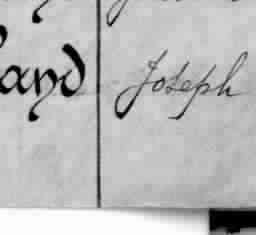 and Joseph